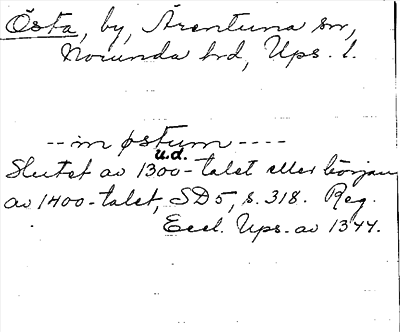 Östa, by, Ärentuna sn,
Norunda hd, Ups. l.
-- in østum ----
u.d.
Slutet av 1300-talet eller början
av 1400-talet, SD 5, s. 318. Reg.
Eccl. Ups. av 1344.